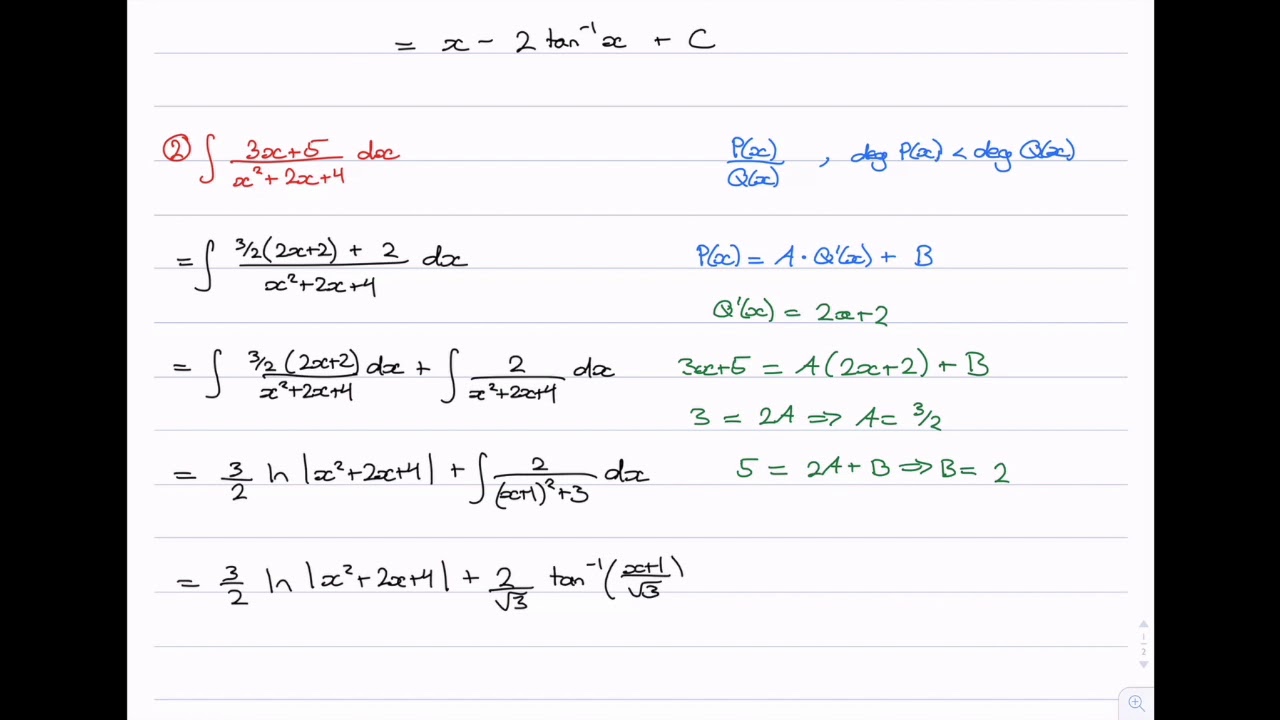 = x - 2 tan⁻¹x + C
② ∫ (3x+5)/(x²+2x+4) dx
P(x)/Q(x) , deg P(x) < deg Q(x)
= ∫ (3/2(2x+2) + 2)/(x²+2x+4) dx
P(x) = A · Q'(x) + B
Q'(x) = 2x+2
= ∫ (3/2 (2x+2))/(x²+2x+4) dx + ∫ 2/(x²+2x+4) dx
3x+5 = A(2x+2) + B
3 = 2A ⇒ A = 3/2
= 3/2 ln |x²+2x+4| + ∫ 2/((x+1)²+3) dx
5 = 2A + B ⇒ B = 2
= 3/2 ln |x²+2x+4| + 2/√3 tan⁻¹((x+1)/√3)
1/2